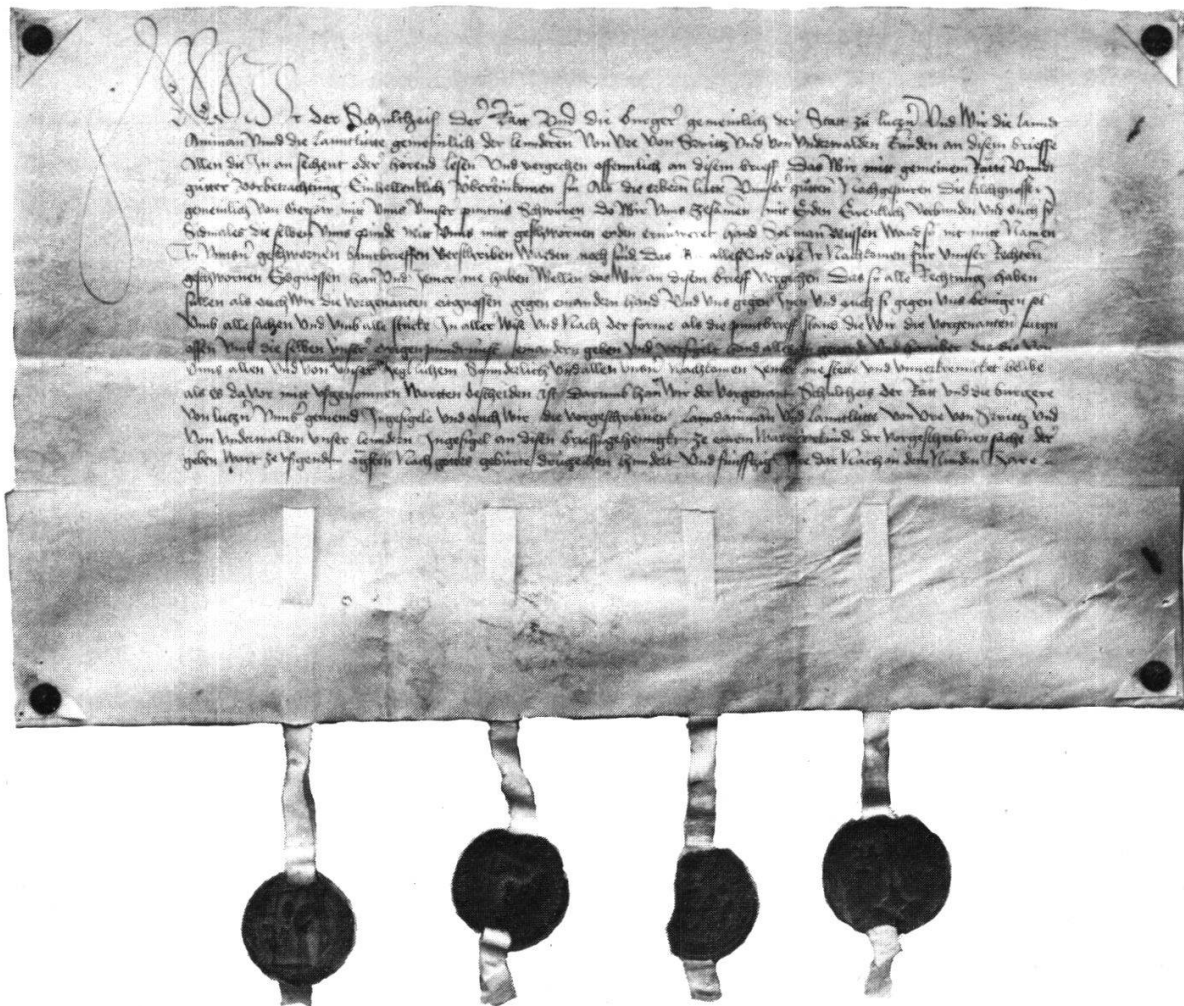 Wir der Schultheis der Rätt Und die burger gemeinlich der Statt zů lucz'n Und Wir die Lannd
Amman Unnd die Lanntlütte gemeinlich der lenndren Von Vre Von Switz Und von Underwalden künden an disem brieffe
Allen die In an sechent oder hörend lesen Und vergechen offennlich an disem brieff Das Wir mitt gemeinem Rätte Unndt
gůtter Vorbetrachtung Einhellenklich Übereinkomen sin Als die erbern lütte Unnser gůtten Nachgepuren die kilchgnosse
gemeinlich von Gersöw mit Unns Unnser puntnis Schwůren do Wir Unns Zesamen mit Eiden Ewenklich Verbunden Und ouch si
die selben Unns pünde mitt Unns mitt geschwornen eiden ernüweret hand Sol man Wüssen Wand si nit mitt Namen
In Unnsern geschwornen puntbrieffen Verschriben Warden noch sind Das alles Und alle Ir Nachkomen für Unnser Rechten
geschwornen Eidgnossen han Und Jemer me haben Wellen das Wir an disem brieff Vergechen Das si alle Rechtung haben
süllen als ouch Wir die Vorgenanten eidgnossen gegen einandren hand Und Uns gegen Inen Und ouch si gegen Uns benügen sol
Umb alle sachen Und umb alle stücke In aller Wise Und Nach der forme als die puntbrieff stand die Wir die Vorgenanten eidgn
ossen Umb die selben Unnser ewigen puntnüst einandern geben Und Versigelt hand
Unns allen Und von Unnser Jegklichem Sunderlich Und allen Unsn Nachkomen Jemer me stett Und Unverkrenncket belibe
als es da vor mitt Usgenomnen Wortten bescheiden ist Darumb han Wir der Vorgenant Schultheis der Rätt Und die burgere
Von lucz'n Unns' gemeind Ingesigele Und ouch Wir die Vorgeschribnen Landamman Und Lanntlütte Von Vre Von Switz Und
Von Underwalden Unser lenndern Ingesigel an disen brieff gehennckt ze einem Waren urkünde der Vorgeschribnen sache der
geben Wart ze Usgendem Ougsten Nach gottes gebürte drüzechen hundert Und fünffzig Jare dar Nach in dem Nünden Jare